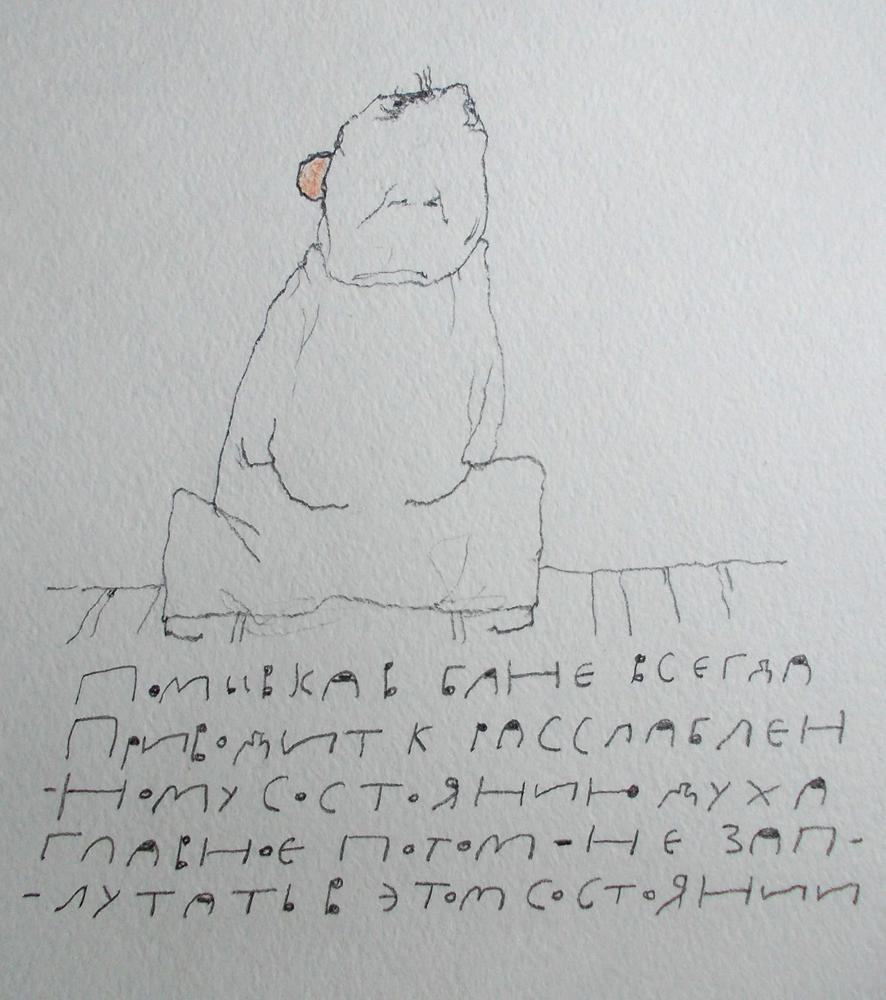 Помывка в бане всегда
приводит к расслаблен
-ному состоянию духа
главное потом - не зап-
-лутать в этом состоянии